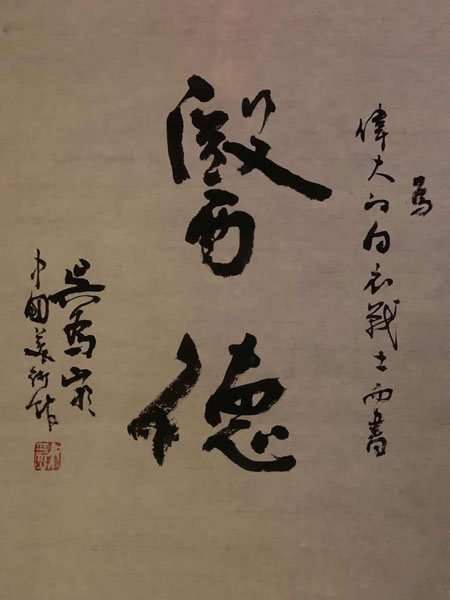 為
偉大的白衣戰士而書
醫德
吳為山
中国美術館